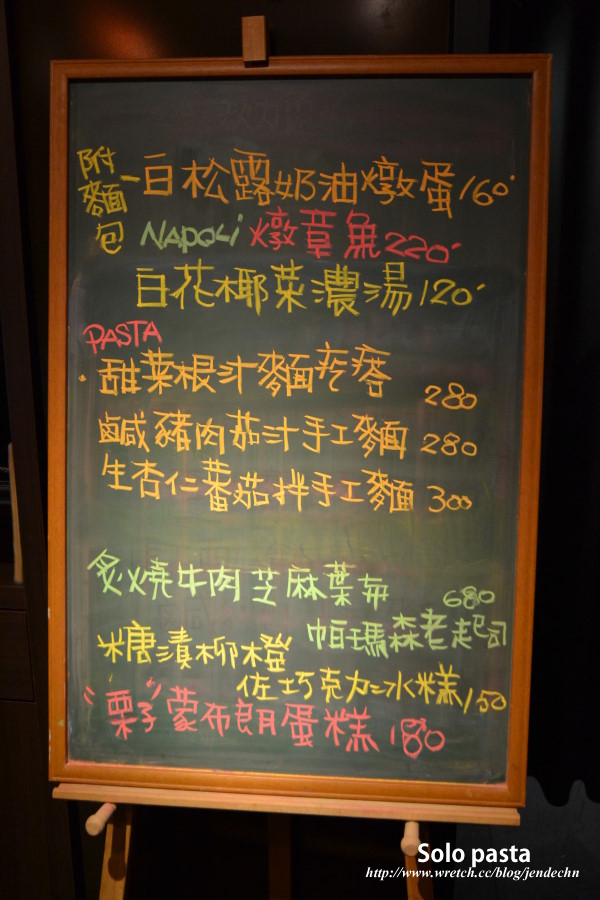 附麵包 - 白松露奶油燉蛋 160
NAPOLI 燉章魚 220
白花椰菜濃湯 120
PASTA
·甜菜根汁麵疙瘩 280
鹹豬肉茄汁手工麵 280
生杏仁蕃茄拌手工麵 300
炙燒牛肉芝麻葉 680
帕瑪森老起司
糖漬柳橙
佐巧克力冰糕 150
栗子蒙布朗蛋糕 180
Solo pasta
http://www.wretch.cc/blog/jendechn